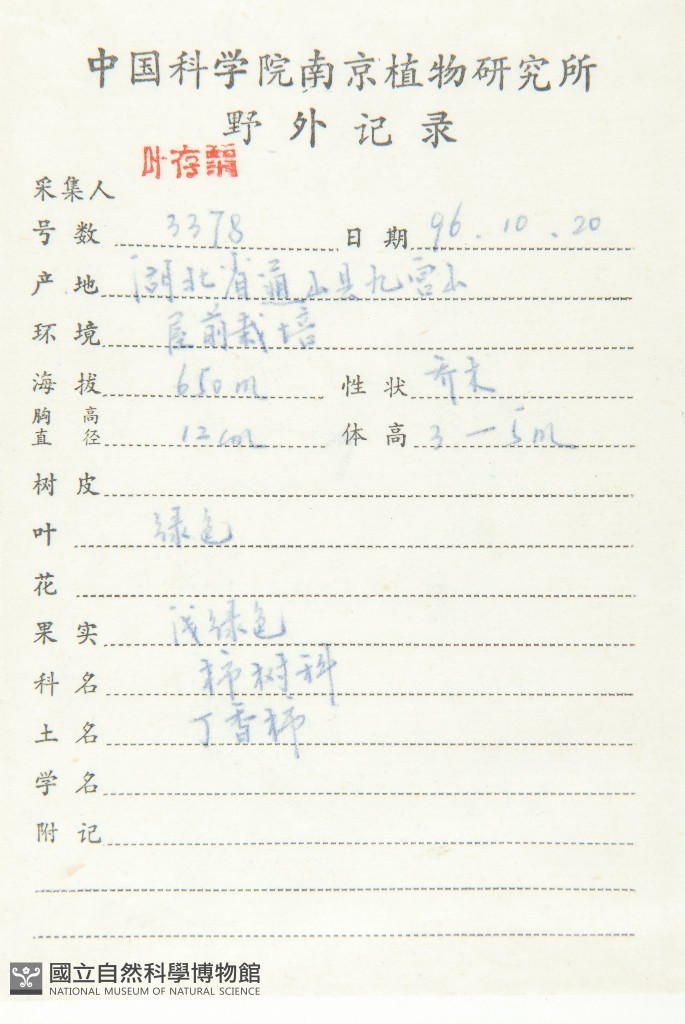 中国科学院南京植物研究所
野外记录
叶存
采集人
号数 3378 日期 96.10.20
产地 湖北省通山县九宫山
环境 屋前栽培
海拔 650m 性状 乔木
胸高直径 12cm 体高 3-5m
树皮
叶 绿色
花
果实 浅绿色
科名 柿树科
土名 丁香柿
学名
附记
國立自然科學博物館
NATIONAL MUSEUM OF NATURAL SCIENCE